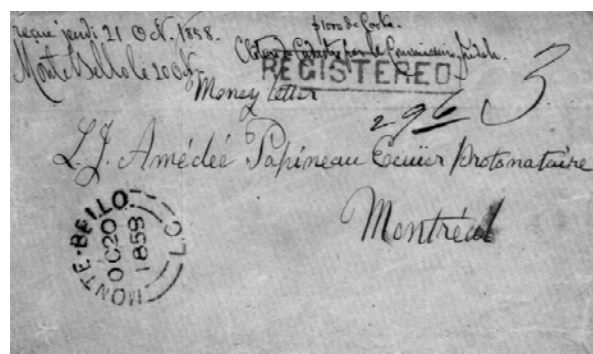 reçue jeudi 21 Oct. 1858.
MonteBello le 20 Oct.
par le
REGISTERED
Money letter
296 3
L. J. Amédée Papineau Ecuier Protonataire
Montréal
MONTE-BELLO L.C
OC 20
1858